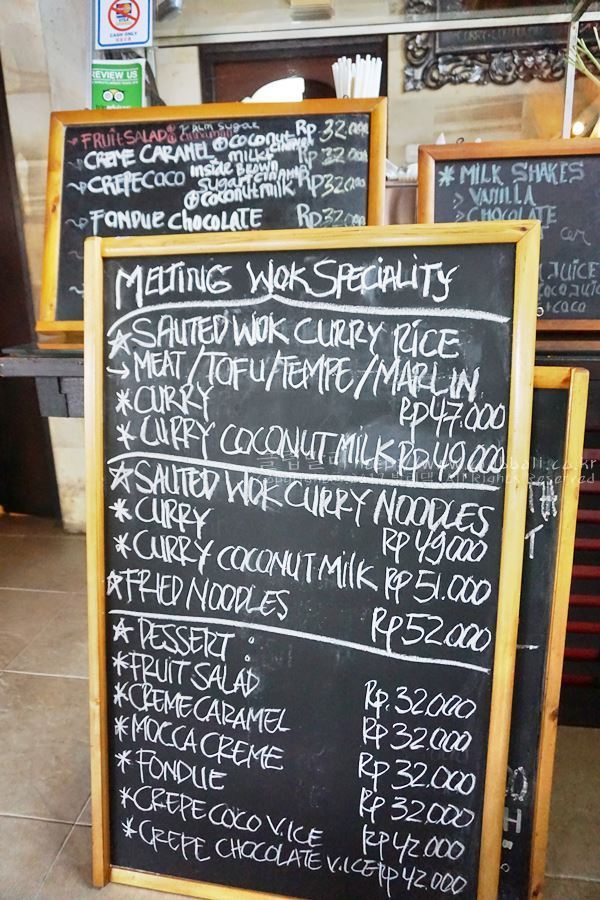 CASH ONLY
REVIEW US
FRUITSALAD PALM SUGAR Rp 32.000
CREME CARAMEL COCONUT MILK Rp 32.000
CREPE COCO INSIDE BROWN SUGAR COCONUT MILK Rp 32.000
FONDUE CHOCOLATE Rp 32.000
* MILK SHAKES
> VANILLA
> CHOCOLATE
JUICE
MELTING WOK SPECIALITY
☆ SAUTED WOK CURRY RICE
→ MEAT/TOFU/TEMPE/MARLIN
* CURRY Rp 47.000
* CURRY COCONUT MILK Rp 49.000
☆ SAUTED WOK CURRY NOODLES
* CURRY Rp 49.000
* CURRY COCONUT MILK Rp 51.000
☆ FRIED NOODLES Rp 52.000
☆ DESSERT :
* FRUIT SALAD Rp. 32.000
* CREME CARAMEL Rp 32.000
* MOCCA CREME Rp 32.000
* FONDUE Rp 32.000
* CREPE COCO V.ICE Rp 42.000
* CREPE CHOCOLATE V.ICE Rp 42.000
All Rights Reserved